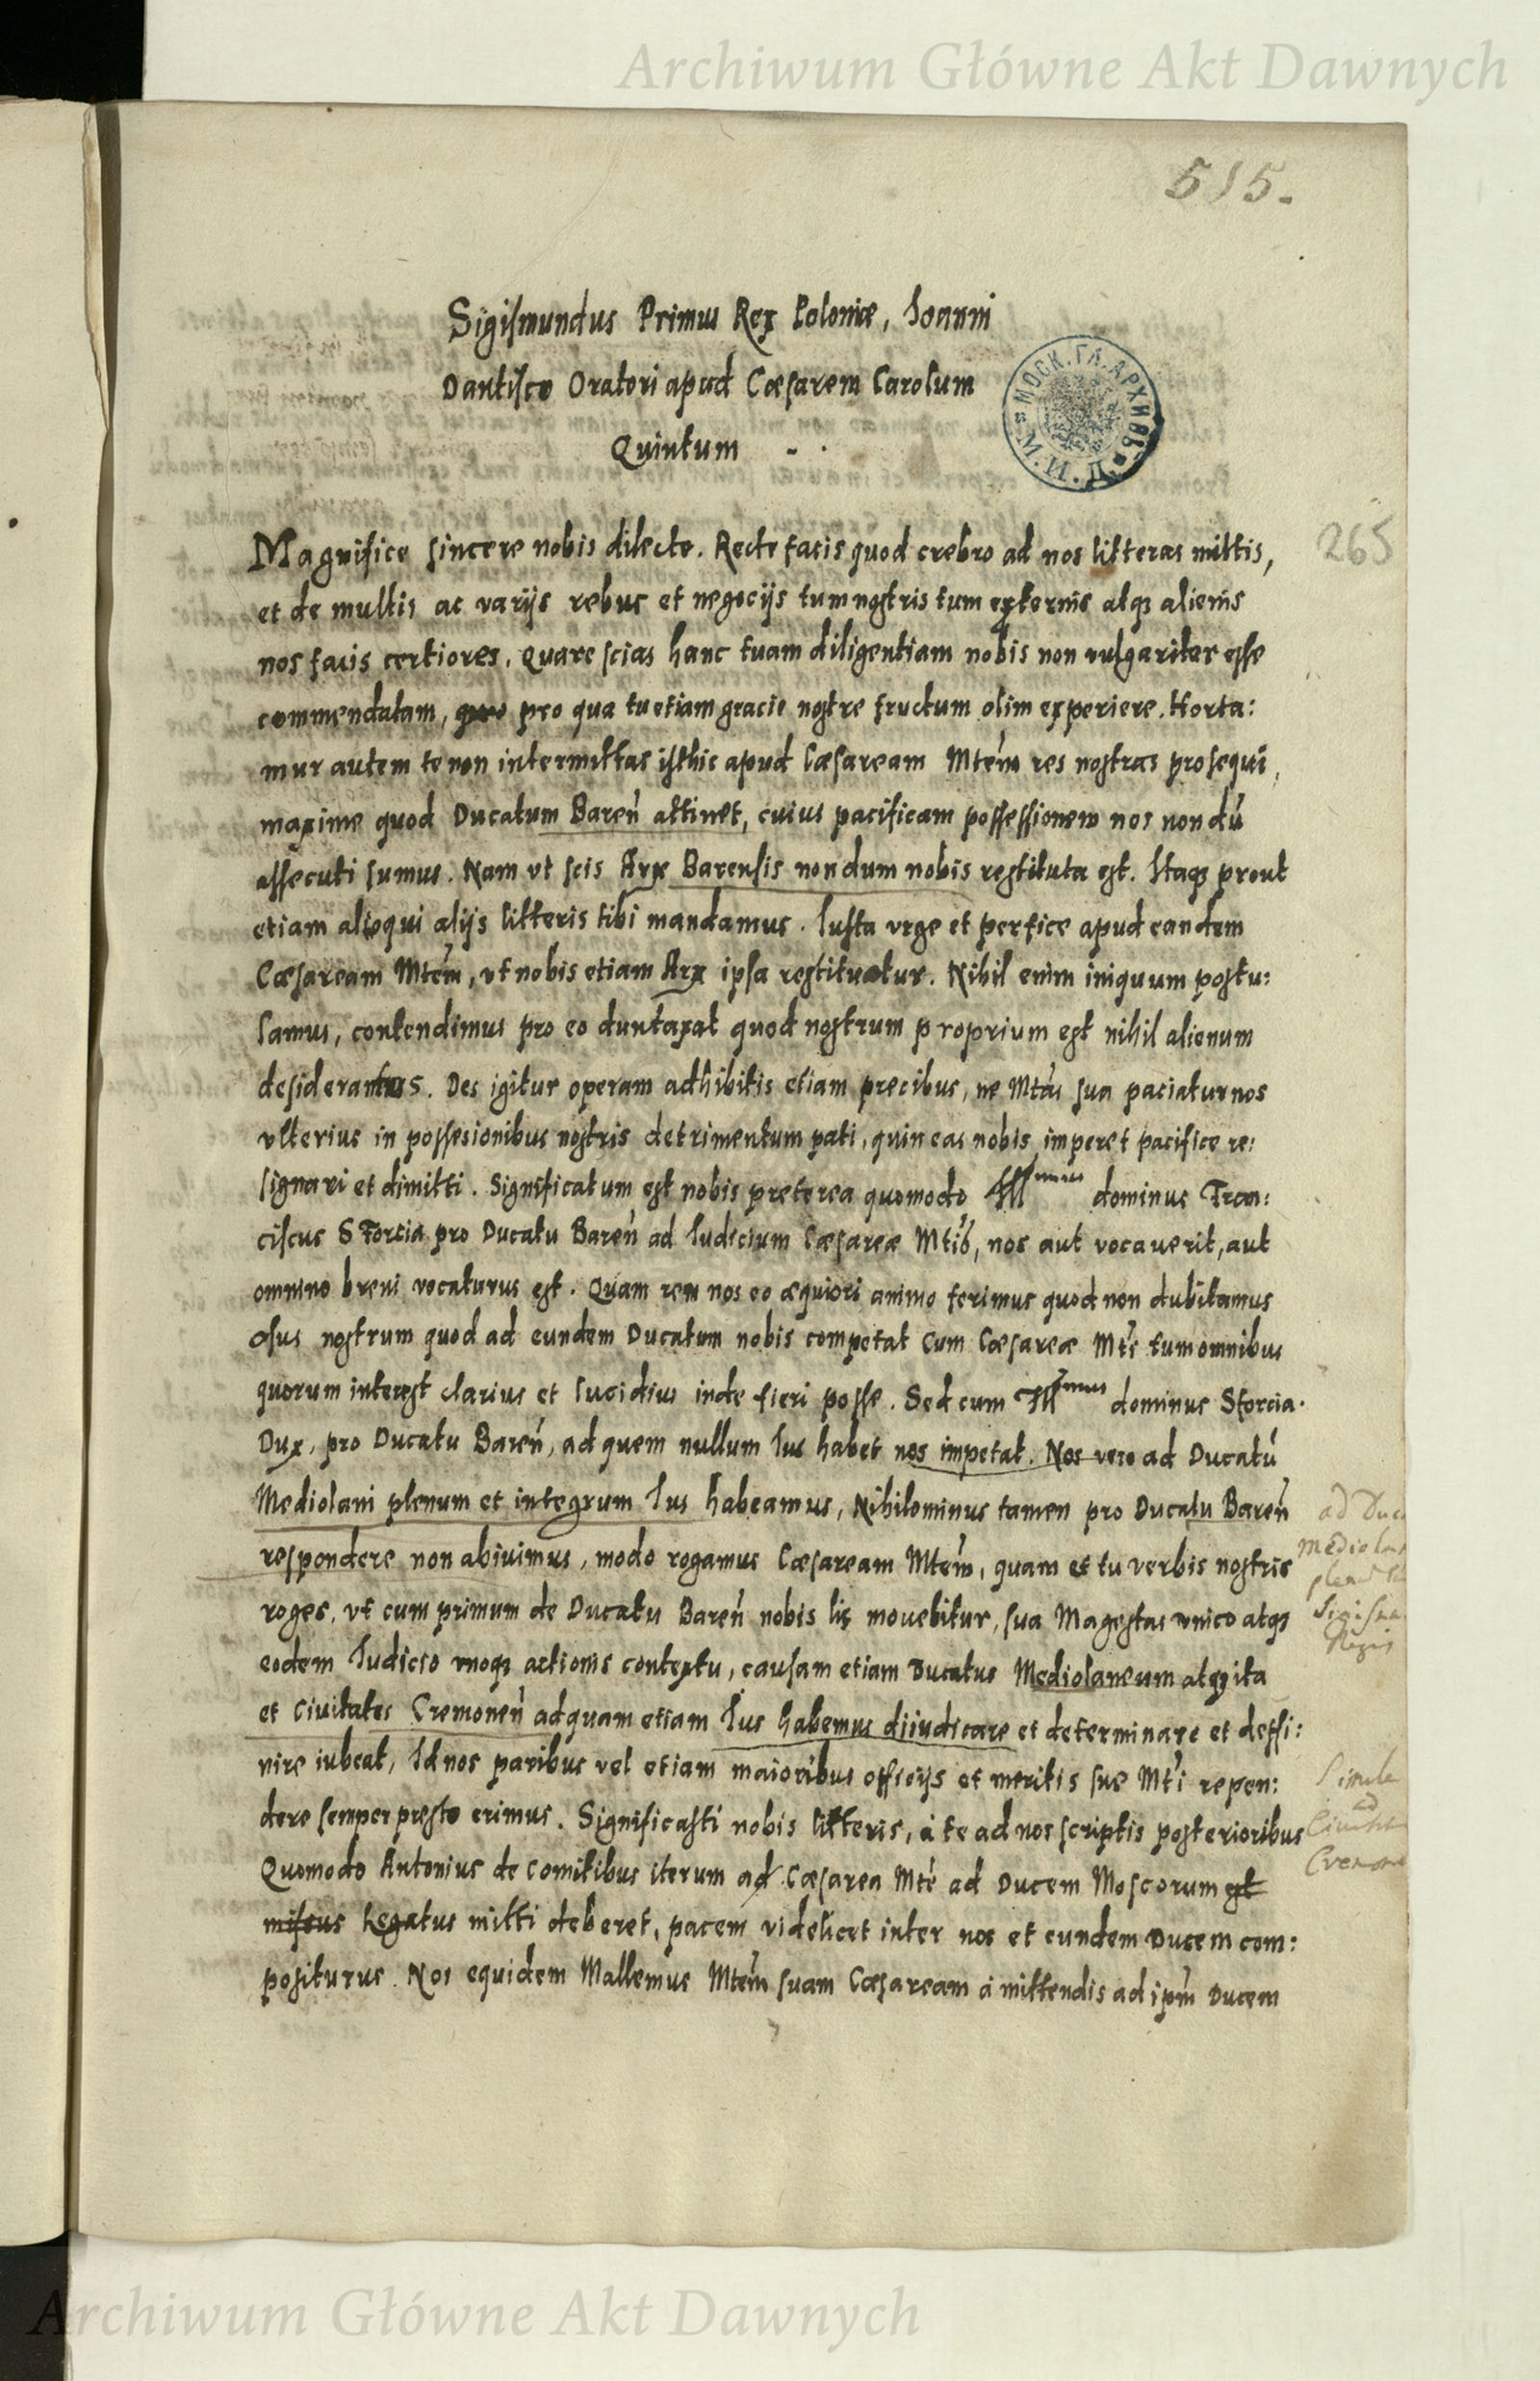 Archiwum Główne Akt Dawnych
515.
Sigismundus Primus Rex Poloniæ, Ioanni
Dantisco Oratori apud Cæsarem Carolum
Quintum
МОСК.ГЛ.АРХИВЪ
М.И.Д.
265
Magnifice sincere nobis dilecte. Recte facis quod crebro ad nos litteras mittis,
et de multis ac varijs rebus et negocijs tum nostris tum externis atq3 alienis
nos facis certiores. Quare scias hanc tuam diligentiam nobis non vulgariter esse
commendatam, pro qua tu etiam gracie nostre fructum olim experiere. Horta:
mur autem te non intermittas isthic apud Cæsaream Mtem̃ res nostras prosequi,
maxime quod Ducatum Bareñ attinet, cuius pacificam possessionem nos non dũ
assecuti sumus. Nam vt scis Arx Barensis nondum nobis restituta est. Itaq3 prout
etiam alioqui alijs litteris tibi mandamus. Iusta vrge et perfice apud eandem
Cæsaream Mtem̃, vt nobis etiam Arx ipsa restituatur. Nihil enim iniquum postu:
lamus, contendimus pro eo duntaxat quod nostrum proprium est nihil alienum
desiderantes. Des igitur operam adhibitis etiam precibus, ne Mtas̃ sua paciatur nos
vlterius in possesionibus nostris detrimentum pati, quin eas nobis imperet pacifice re:
signari et dimitti. Significatum est nobis preterea quomodo Illmus dominus Fran:
ciscus Sfortia pro Ducatu Bareñ ad Iudicium Cæsareæ Mtis̃, nos aut vocaverit, aut
omnino breni vocaturus est. Quam rem nos eo æquiori animo ferimus quod non dubitamus
nostrum quod ad eundem Ducatum nobis competat cum Cæsareæ Mtĩ tum omnibus
quorum interest clarius et lucidius inde fieri posse. Sed cum Illmus dominus Sfortia.
Dux, pro Ducatu Bareñ, ad quem nullum Ius habet nos impetat. Nos vero ad Ducatũ
Mediolani plenum et integrum Ius habeamus, Nihilominus tamen pro Ducatu Bareñ
respondere non abiuimus, modo rogamus Cæsaream Mtem̃, quam et tu verbis nostris
roges, vt cum primum de Ducatu Bareñ nobis lis mouebitur, sua Magestas vnico atq3
eodem Iudicio vnoq3 actionis contextu, causam etiam Ducatus Mediolaneum atq3 ita
et Ciuitates Cremoneñ ad quam etiam Ius habemus diiudicare et determinare et deffi:
nire iubeat, Id nos paribus vel etiam maioribus officijs et meritis sue Mtĩ repen:
dere semper presto erimus. Significasti nobis litteris, à te ad nos scriptis posterioribus
Quomodo Antonius de comitibus iterum ad Cæsarea Mtẽ ad Ducem Moscorum est
missus Legatus mitti deberet, pacem videlicet inter nos et eundem Ducem com:
positurus. Nos equidem Mallemus Mtem̃ suam Cæsaream à mittendis ad ipm̃ Ducem
ad Duc
Mediolan
Sigism
Regis
Simile
ad
Ciuitat
Cremon
Archiwum Główne Akt Dawnych